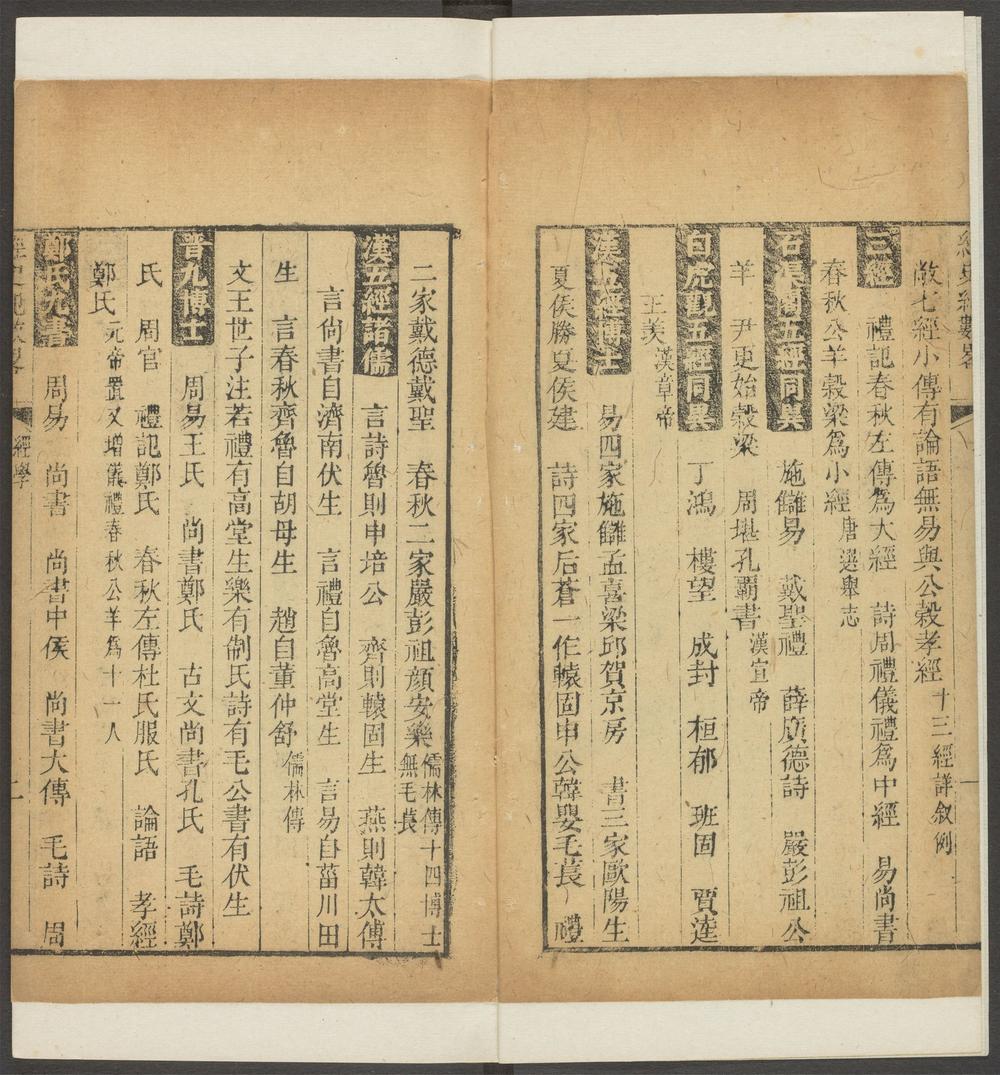 敞七經小傳有論語無易與公穀孝經十三經詳叙例
三經 禮記春秋左傳爲大經 詩周禮儀禮爲中經 易尚書
春秋公羊穀梁爲小經唐選舉志
石渠閣五經同異 施讎易 戴聖禮 薛廣德詩 嚴彭祖公
羊 尹更始穀梁 周堪孔霸書漢宣帝
白虎觀五經同異 丁鴻 樓望 成封 桓郁 班固 賈逵
王羡漢章帝
漢五經博士 易四家施讎孟喜梁邱賀京房 書三家歐陽生
夏侯勝夏侯建 詩四家后蒼一作轅固申公韓嬰毛萇 禮
二家戴德戴聖 春秋二家嚴彭祖顔安樂儒林傳十四博士無毛萇
漢五經諸儒 言詩魯則申培公 齊則轅固生 燕則韓太傅
言尙書自濟南伏生 言禮自魯高堂生 言易自菑川田
生 言春秋齊魯自胡母生 趙自董仲舒儒林傳
文王世子注若禮有高堂生樂有制氏詩有毛公書有伏生
晉九博士 周易王氏 尚書鄭氏 古文尚書孔氏 毛詩鄭
氏 周官 禮記鄭氏 春秋左傳杜氏服氏 論語 孝經
鄭氏元帝置又增儀禮春秋公羊爲十一人
鄭氏九書 周易 尚書 尚書中侯 尚書大傳 毛詩 周
經學
二